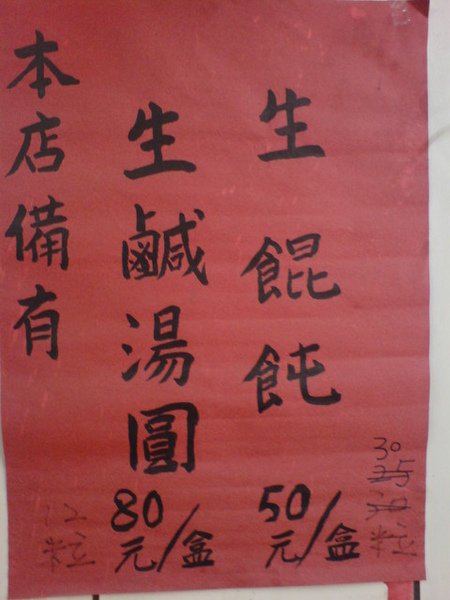 本店備有
生鹹湯圓
80元/盒
12粒
生餛飩
50元/盒
30粒